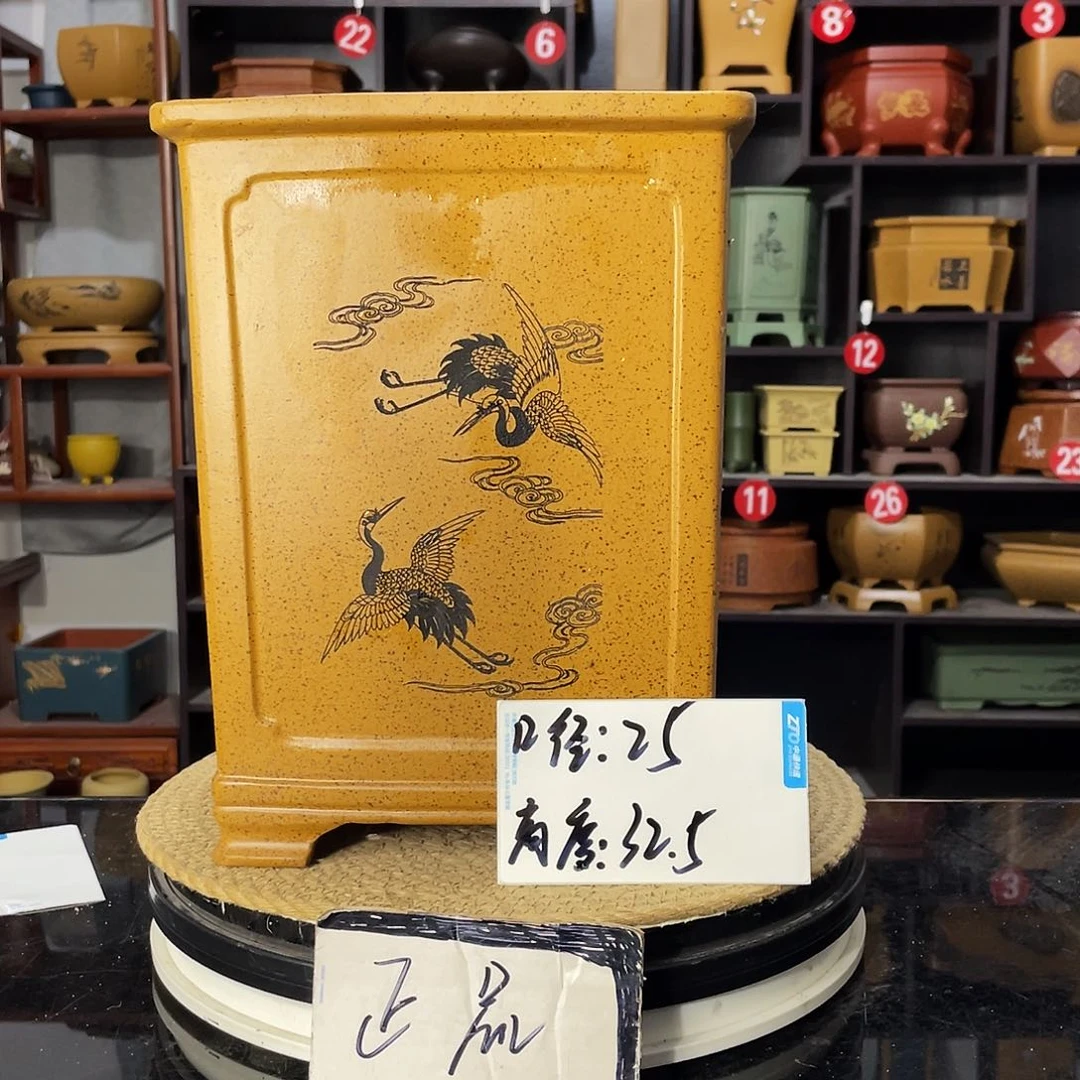 22
6
8
3
12
23
11
26
口径:25
高度:32.5
ZTO 中通快递
3
正品